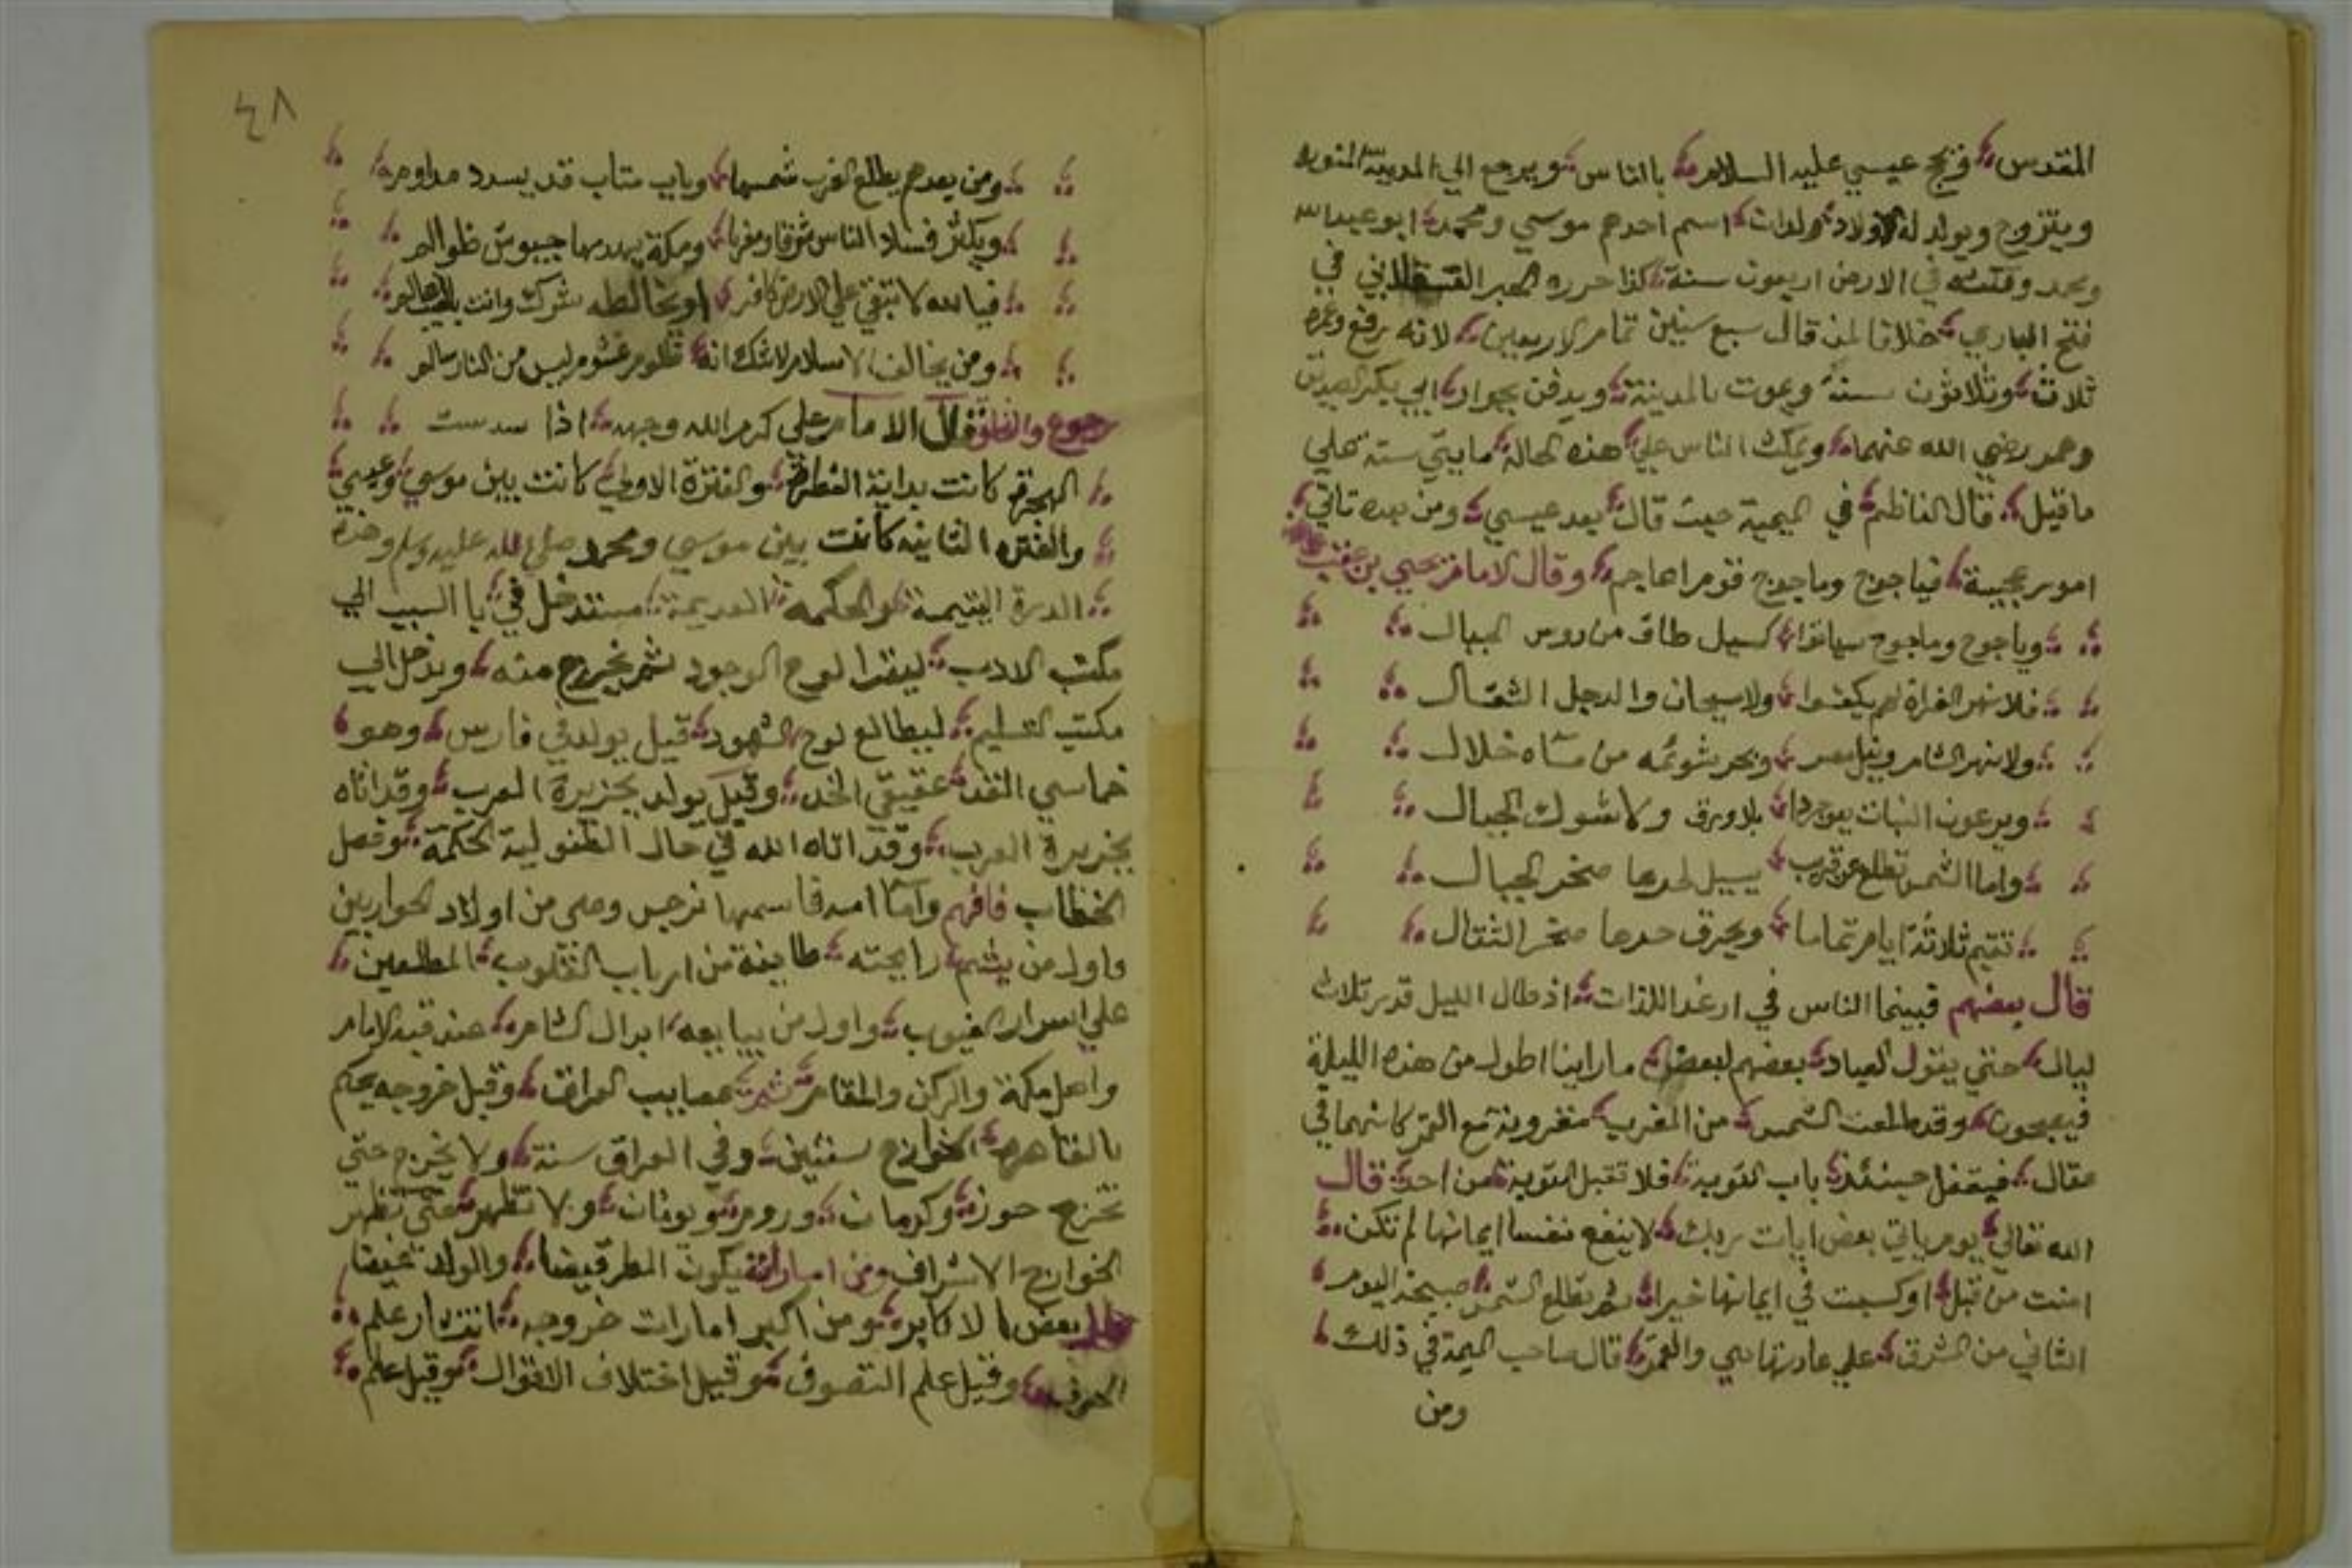 المقدس ويحج عيسي عليه السلام بالناس ويرجع الي المدينة المنورة
ويتزوج ويولد له اولاد ولدان اسم احدهم موسي ومحمد ابو عبدالله
ومحمد في الارض اربعون سنة كذا حرره القسطلاني في
فتح الباري خلافا لمن قال سبع سنين تمام الاربعين لانه رفع وعمره
ثلاث وثلاثون سنة ويموت بالمدينة ويدفن بجوار ابي بكر الصديق
وعمر رضي الله عنهما ويمكث الناس علي هذه الحالة مايتي سنة علي
ما قيل قال الناظم في الميمية حيث قال بعد عيسي ومن بعده تاتي
امور عجيبة فياجوج وماجوج قوم اعاجم وقال الامام يحيي بن عقب
وياجوج وماجوج سياتوا كسيل طاف من روس الجبال
فلا نهر الفراة لهم يكفوا ولا سيحان والدجل الثقال
ولا نهر الشام ونيل مصر وبحر من مآه خلال
ويرعون النبات بلا ورق ولا شوك الجبال
واما الشمس تطلع عن قريب يسيل لحرها صخر الجبال
تقيم ثلاثة ايام تماما ويحرق حرها صخر الثقال
قال بعضهم فبينما الناس في ارغد اللذات اذ طال الليل قدر ثلاث
ليال حتي يقول العباد بعضهم لبعض ما راينا اطول من هذه الليلة
فيصحون وقد طلعت الشمس من المغرب مقرونة مع القمر كانهما في
عقال فيقفل حينئذ باب التوبة فلا تقبل التوبة من احد قال
الله تعالي يوم ياتي بعض ايات ربك لا ينفع نفسا ايمانها لم تكن
امنت من قبل او كسبت في ايمانها خيرا ثم تطلع الشمس صبيحة اليوم
الثاني من الشرق علي عادتها هي والقمر قال صاحب الميمة في ذلك
ومن
٤٨
ومن بعدهم يطلع الغرب شمسها وباب متاب قد يسدد مداوم
ويكثر فساد الناس شرقا ومغربا ومكة يهدمها جيوش ظوالم
فيا الله لا تبقي علي الارض كافر او يخالطه شرك وانت
ومن يخالف الاسلام لا شك انه ظلوم غشوم ليس من النار سالم
رجوع قال الامام علي كرم الله وجهه اذا
الهجرة كانت بداية والفترة الاولي كانت بين موسي وعيسي
والفتره الثانيه كانت بين موسي ومحمد صلي الله عليه وسلم وهذه
الدرة اليتيمة والحكمه القديمة ستدخل في با السبب الي
مكتب الادب ليقرا لوح الوجود ثم يخرج منه ويدخل الي
مكتب التسليم ليطالع لوح الشهود قيل يولد في فارس وهو
خماسي القد عقيقي الخد وقيل يولد بجزيرة العرب وقد اتاه
بجزيرة العرب وقد اتاه الله في حال الطفولية الحكمة وفصل
الخطاب فافهم واما امه فاسمها نرجس وهي من اولاد الحواريين
واول من يشم رايحته طايفة من ارباب القلوب المطلعين
علي اسرار الغيوب واول من يبايعه ابدال الشام عند قبة الامام
واهل مكة والركن والمقام ثم عصايب العراق وقبل خروجه يحكم
بالقاهرة الخوارج سنتين وفي العراق سنة ولا يخرج حتي
تخرج حوز وكرمان وروم ويونان ولا تظهر حتي تظهر
الخوارج الاشراف ومن اماراته يكون المطر قيضا والولد غيضا
قال بعض الاكابر ومن اكبر امارات خروجه انتشار علم
الحرف وقيل علم التصوف وقيل اختلاف الاقوال وقيل علم